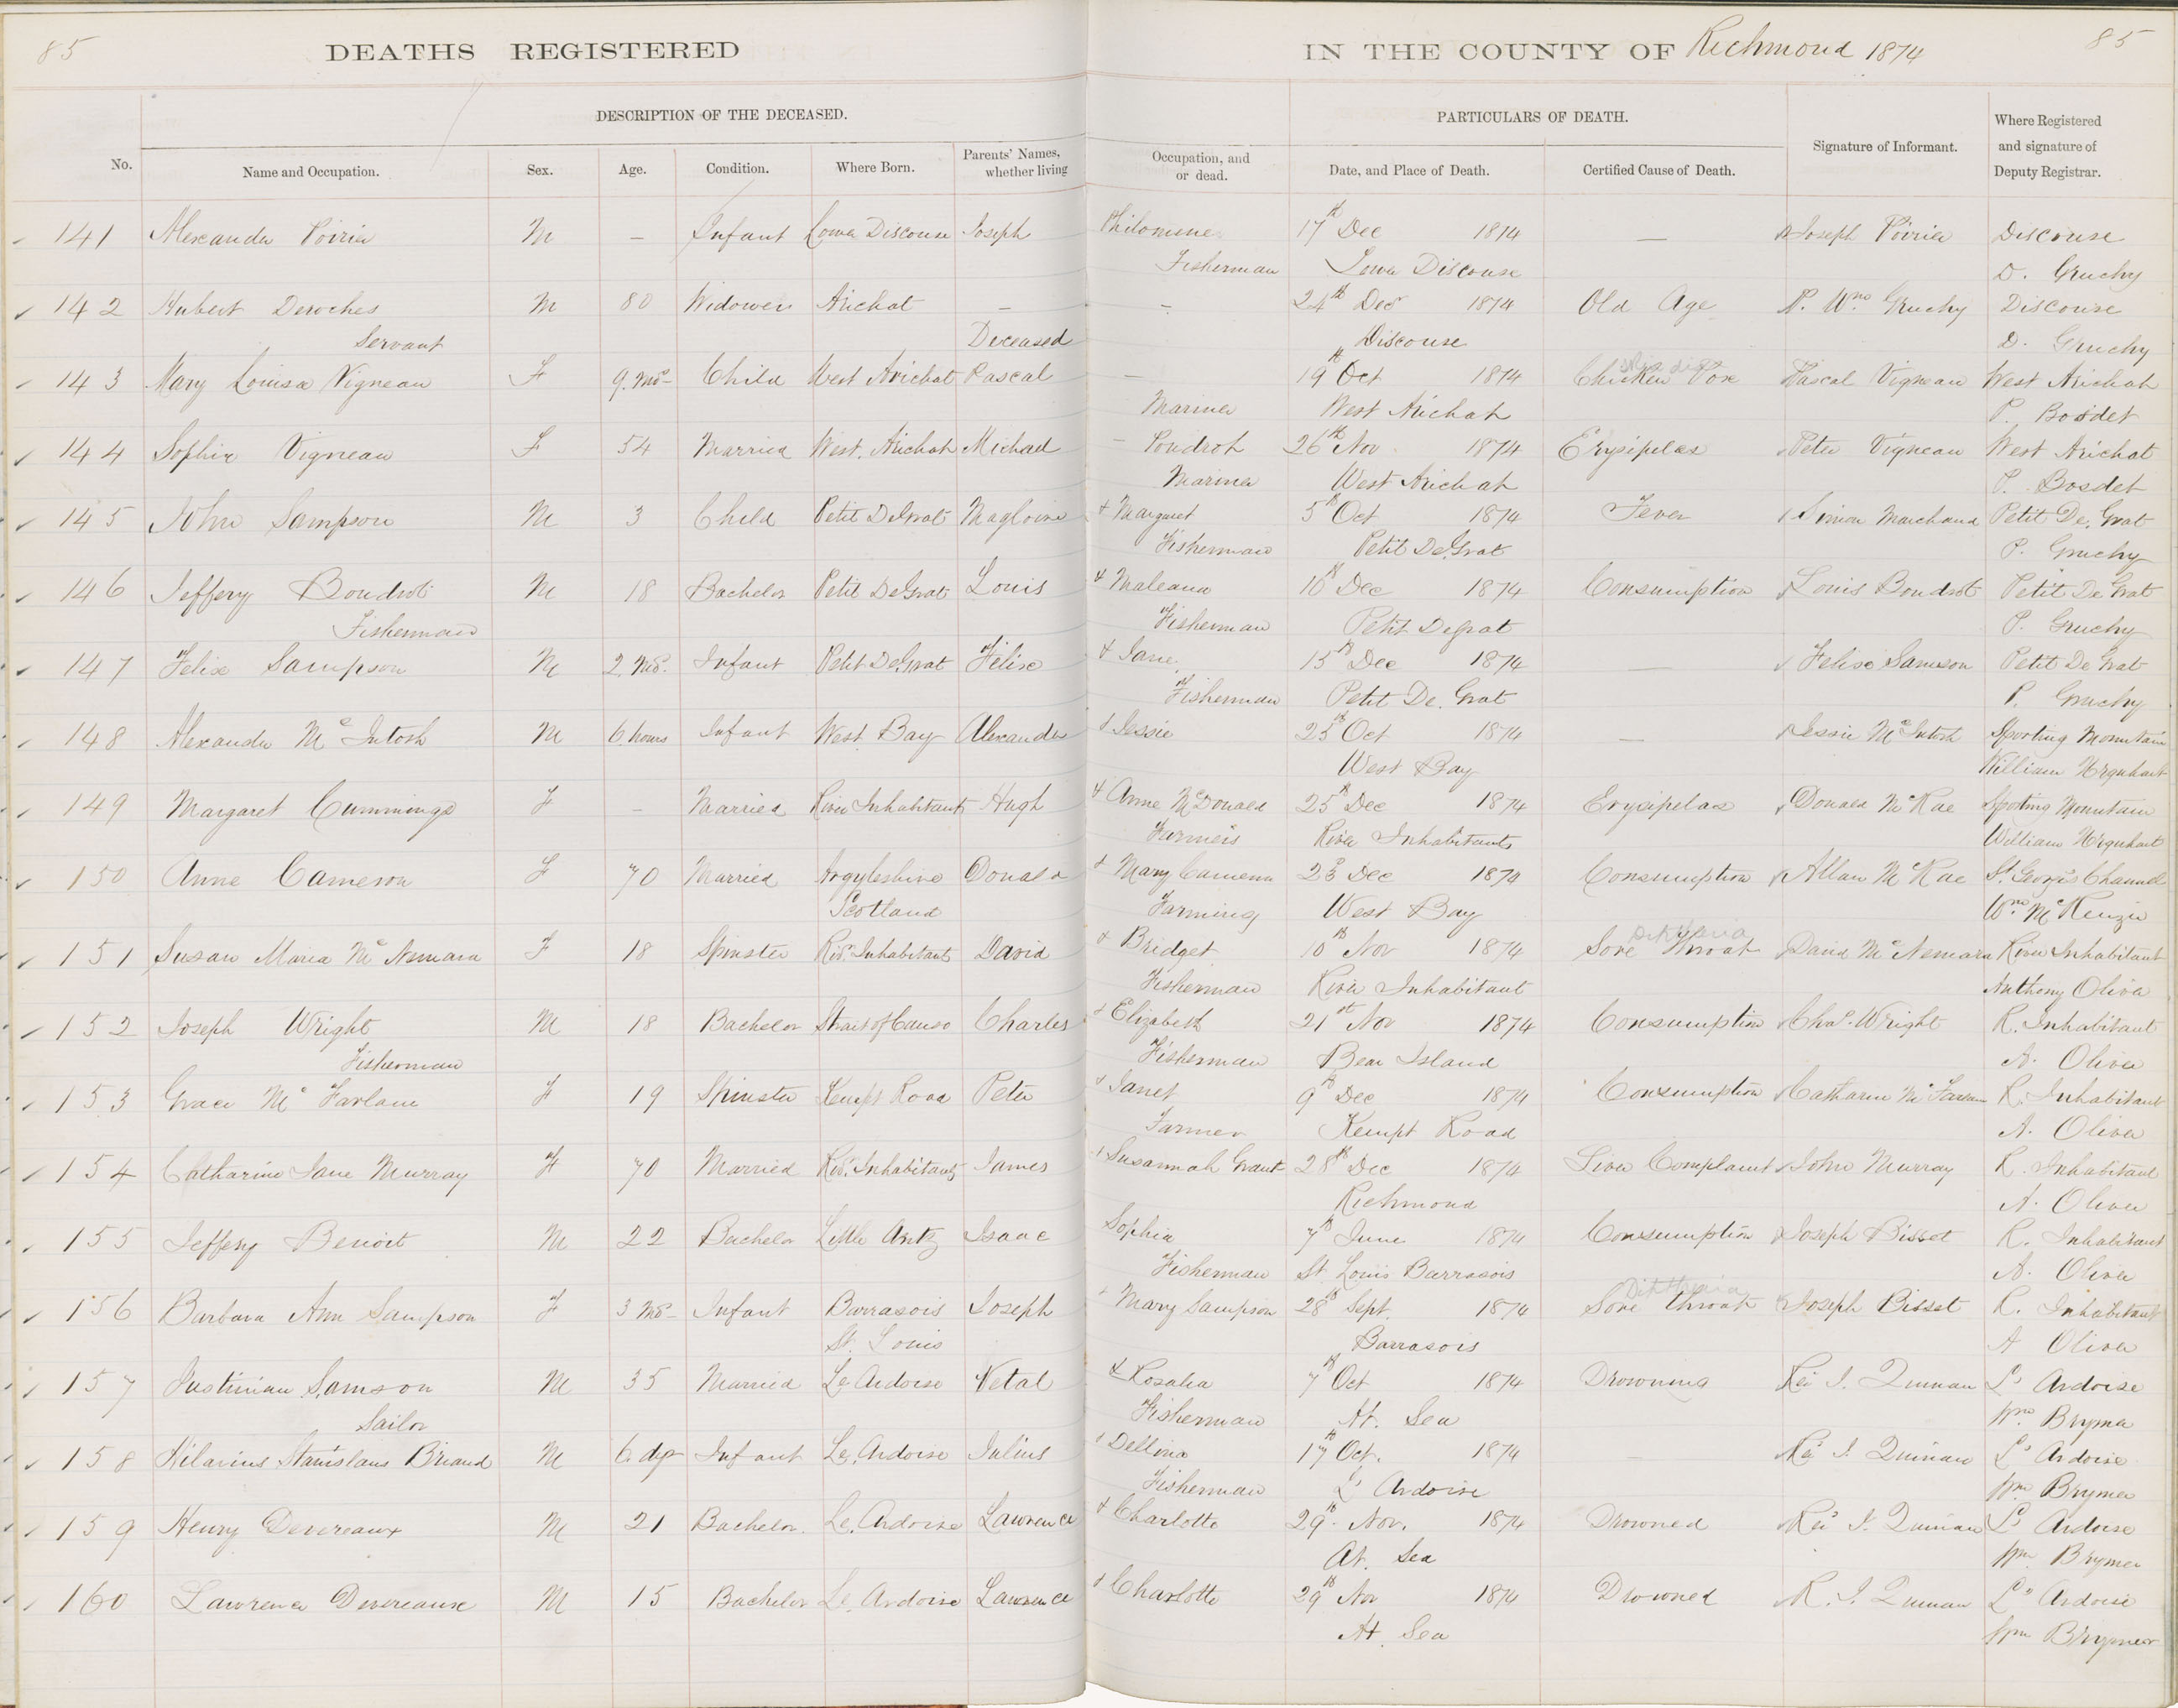 85
DEATHS REGISTERED IN THE COUNTY OF Richmond 1874
85
DESCRIPTION OF THE DECEASED. PARTICULARS OF DEATH.
No. Name and Occupation. Sex. Age. Condition. Where Born. Parents' Names, whether living Occupation, and or dead. Date, and Place of Death. Certified Cause of Death. Signature of Informant. Where Registered and signature of Deputy Registrar.
141 Alexander Poirier M — Infant Lower Discouse Joseph Philomene 17th Dec 1874 — Joseph Poirier Discouse
Fisherman Lower Discouse D. Gruchy
142 Hubert Deroches M 80 Widower Arichat — — 24th Dec 1874 Old Age P. Wm Gruchy Discouse
Servant Deceased Discouse D. Gruchy
143 Mary Louisa Vigneau F 9. mos Child West Arichat Pascal — 19th Oct 1874 Chicken Pox Pascal Vigneau West Arichat
Mariner West Arichat P. Bosdet
144 Sophie Vigneau F 54 Married West. Arichat Michael — Poudrot 26th Nov 1874 Erysipelas Peter Vigneau West Arichat
Mariner West Arichat P. Bosdet
145 John Sampson M 3 Child Petit DeGrat Magloire & Margaret 5th Oct 1874 Fever Simon Marchand Petit De Grat
Fisherman Petit DeGrat P. Gruchy
146 Jeffery Boudrot M 18 Bachelor Petit DeGrat Louis & Maleana 10th Dec 1874 Consumption Louis Boudrot Petit De Grat
Fisherman Fisherman Petit DeGrat P. Gruchy
147 Felix Sampson M 2 Mos. Infant Petit DeGrat Felix & Jane 15th Dec 1874 — Felix Samson Petit De Grat
Fisherman Petit De. Grat P. Gruchy
148 Alexander Mc Intosh M 6 hours Infant West Bay Alexander & Jessie 25th Oct 1874 — Jessie McIntosh Sporting Mountain
West Bay William Urquhart
149 Margaret Cummings F — Married River Inhabitants Hugh & Anne McDonald 25th Dec 1874 Erysipelas Donald McRae Sporting Mountain
Farmers River Inhabitants William Urquhart
150 Anne Cameron F 70 Married Argyleshire Donald & Mary Cameron 23d Dec 1874 Consumption Allan McRae St. Georges Channel
Scotland Farming West Bay Wm McKenzie
151 Susan Maria Mc Nemara F 18 Spinster Rivr Inhabitants David & Bridget 10th Nov 1874 Sore Throat Diptheria David McNemara River Inhabitant
Fisherman River Inhabitant Anthony Oliver
152 Joseph Wright M 18 Bachelor Strait of Canso Charles & Elizabeth 21st Nov 1874 Consumption Chas. Wright R. Inhabitant
Fisherman Fisherman Bear Island A. Oliver
153 Grace Mc Farlane F 19 Spinster Kempt Road Peter & Janet 9th Dec 1874 Consumption Catharine Mc R. Inhabitant
Farmer Kempt Road A. Oliver
154 Catharine Jane Murray F 70 Married Rivr Inhabitants James & Susannah Grant 28th Dec 1874 Liver Complaint John Murray R. Inhabitant
Richmond A. Oliver
155 Jeffery Benoit M 22 Bachelor Little Isaac Sophia 7th June 1874 Consumption Joseph Bisset R. Inhabitant
Fisherman St. Louis Barrasois A. Oliver
156 Barbara Ann Sampson F 3 Mos Infant Barrasois Joseph & Mary Sampson 28th Sept. 1874 Sore throat Diptheria Joseph Bisset R. Inhabitant
St. Louis Barrasois A Oliver
157 Justinian Samson M 35 Married Le Ardoise Vetal & Rosalia 7th Oct 1874 Drowning Rev J. Quinan L' Ardoise
Sailor Fisherman At. Sea Wm. Brymer
158 Hilarius Stanislaus Briand M 6. dys Infant Le. Ardoise Julius & Dellina 17th Oct. 1874 — Rev J. Quinan L' Ardoise
Fisherman L' Ardoise Wm Brymer
159 Henry Devereaux M 21 Bachelor. Le. Ardoise Lawrence & Charlotte 29th. Nov. 1874 Drowned Rev J. Quinan L' Ardoise
At. Sea Wm Brymer
160 Lawrence Devereaux M 15 Bachelor Le. Ardoise Lawrence & Charlotte 29th Nov 1874 Drowned R. J. Quinan L' Ardoise
At. Sea Wm Brymer